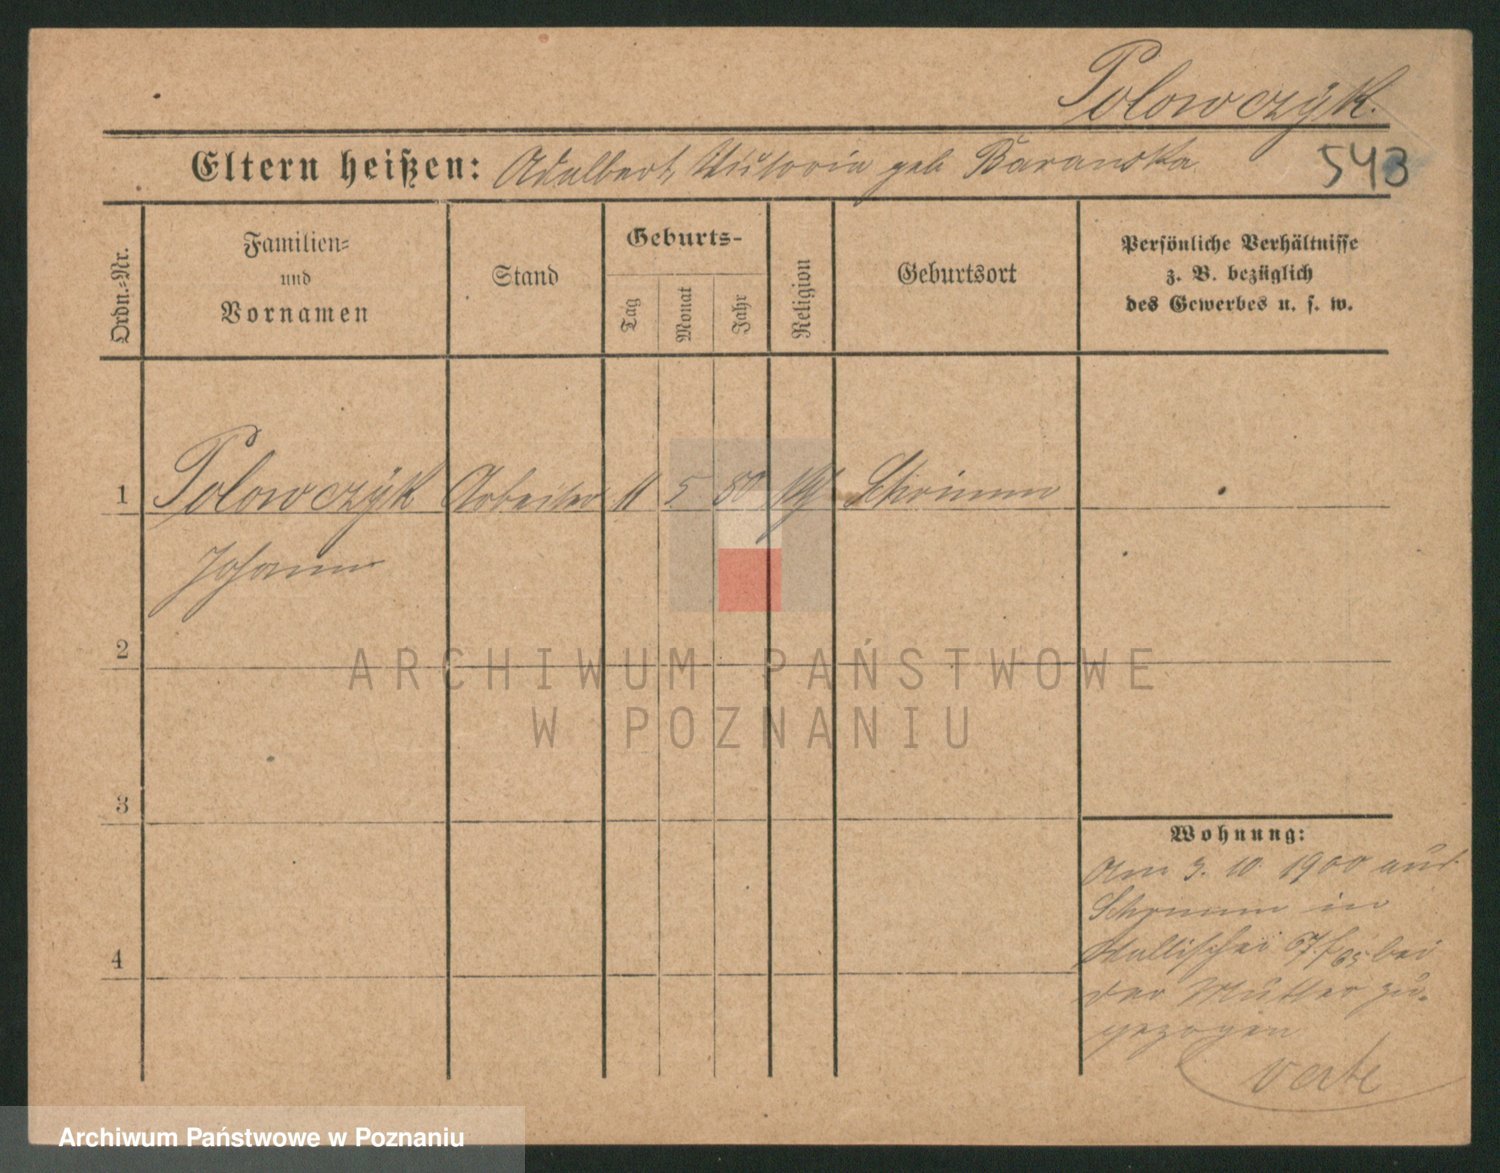 Polowczÿk.
Eltern heißen: Adalbert, Victoria geb Baranska
543
Ordn.=Nr.
Familien=
und
Vornamen
Stand
Geburts-
Tag
Monat
Jahr
Religion
Geburtsort
Persönliche Verhältnisse
z. B. bezüglich
des Gewerbes u. s. w.
1 Polowczÿk Arbeiter 11 5 80 Schrimm
Johann
2
ARCHIWUM PAŃSTWOWE
W POZNANIU
3
Wohnung:
Am 3. 10. 1900 aus
Schrimm in
Wallischei 67/ bei
der Mutter zu-
gezogen
verte
4
Archiwum Państwowe w Poznaniu